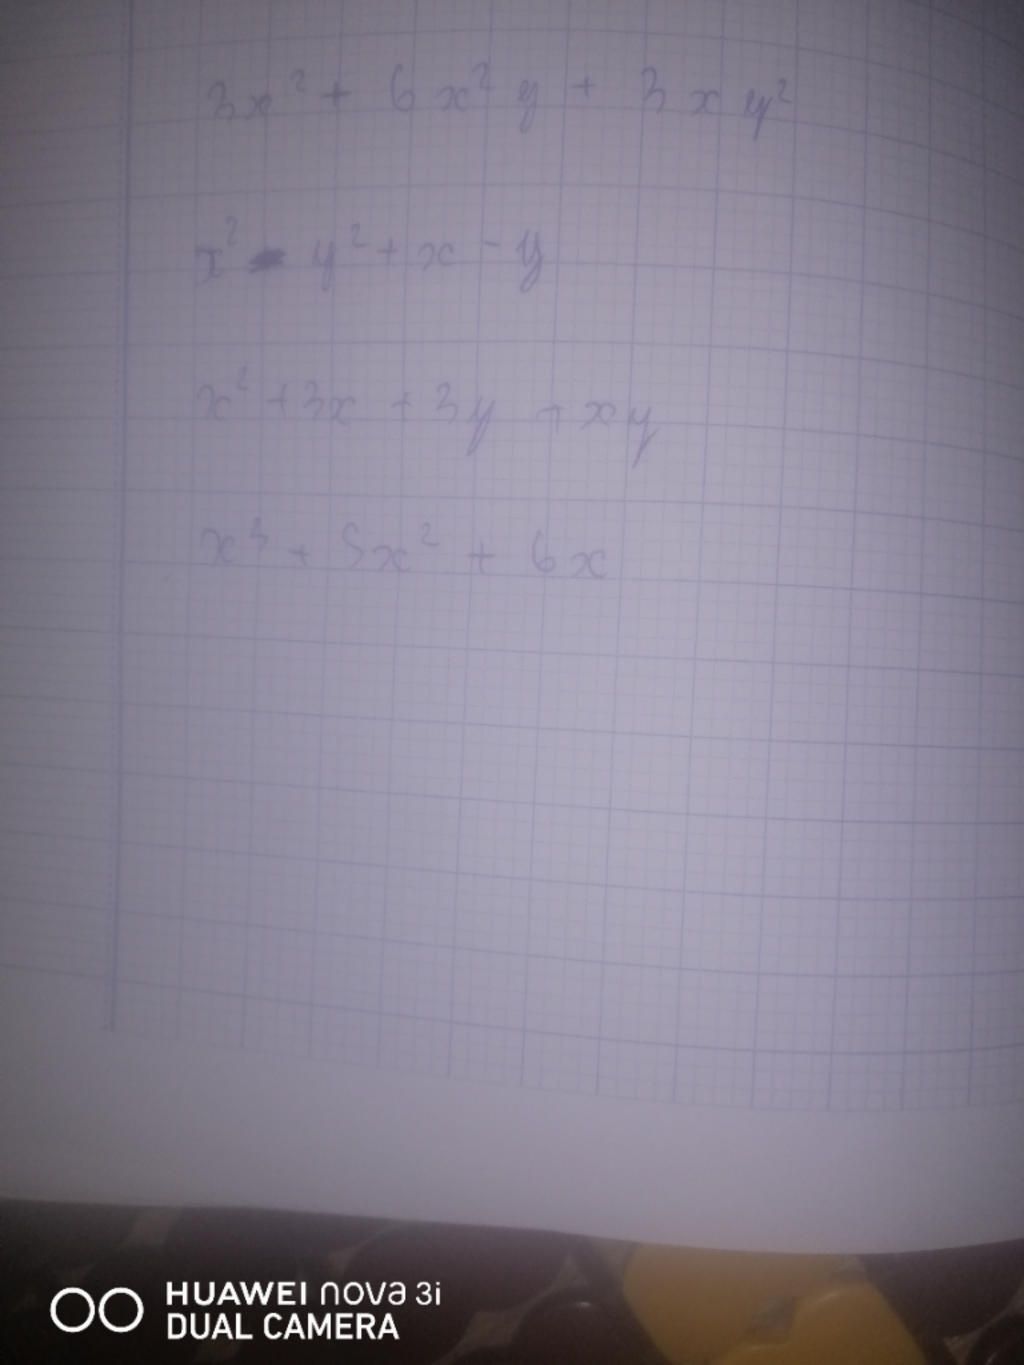 3x² + 6x²y + 3xy²
x² - y² + x - y
x² + 3x + 3y + xy
x³ + 5x² + 6x
HUAWEI nova 3i
DUAL CAMERA